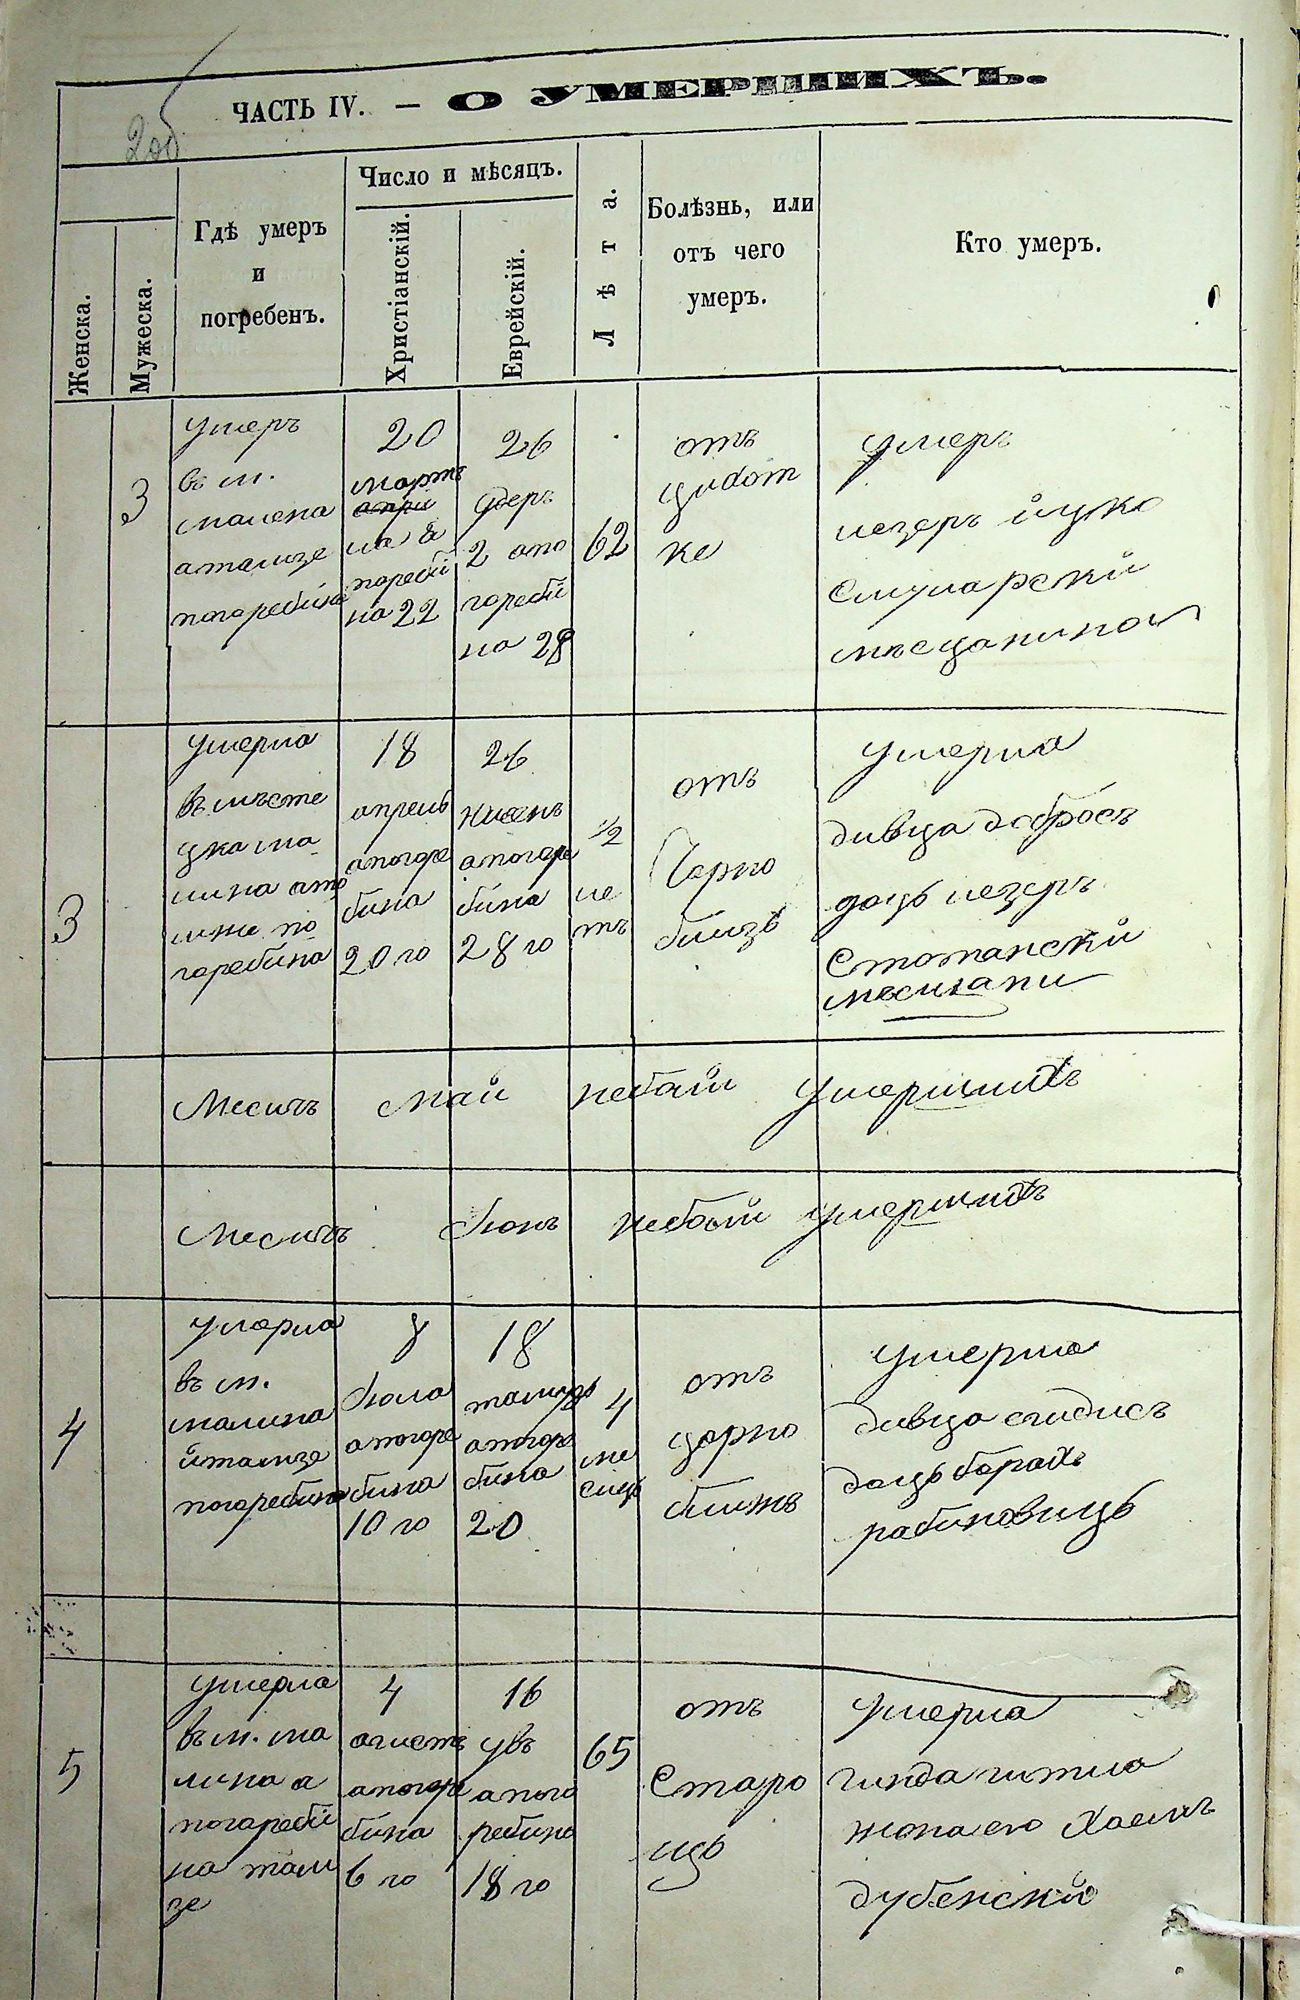 2об
ЧАСТЬ IV. — О УМЕРШИХЪ.
Женска.
Мужеска.
Гдѣ умеръ
и
погребенъ.
Число и мѣсяцъ.
Христіанскій.
Еврейскій.
Лѣта.
Болѣзнь, или
отъ чего
умеръ.
Кто умеръ.
3
умеръ
въ м.
малена
атамзе
погоребина
20
мартъ
апри
погореби
на 22
26
адеръ
2 апо
гореби
на 28
62
отъ
цидот
ке
умеръ
лезеръ ицко
смуларски
мѣсцанином
3
умерла
въ мѣсте
цка ма
лина ато
мже по
горебина
18
апрель
апогоре
бина
20 го
26
нисенъ
апогоре
бина
28 го
1/2
ле
тъ
отъ
Чорно
близъ
умерла
дивца добросъ
доць лезеръ
Стотански
мѣсцкани
Месицъ май небыли умершихъ
Месицъ Июнъ небыли умершихъ
4
умерла
въ м.
малина
итамзе
погоребина
8
Июла
апогоре
бина
10 го
18
тамузъ
апогоре
бина
20
4
ме
сицъ
отъ
цорно
близъ
умерла
дивца сгидисъ
доць борахъ
рабиновицъ
5
умерла
въ м. ма
лина а
погореби
на там
зе
4
агистъ
апогоре
бина
6 го
16
увъ
апого
ребина
18 го
65
отъ
Старо
ць
умерла
гинда гитла
жона его Хаемъ
дубенски